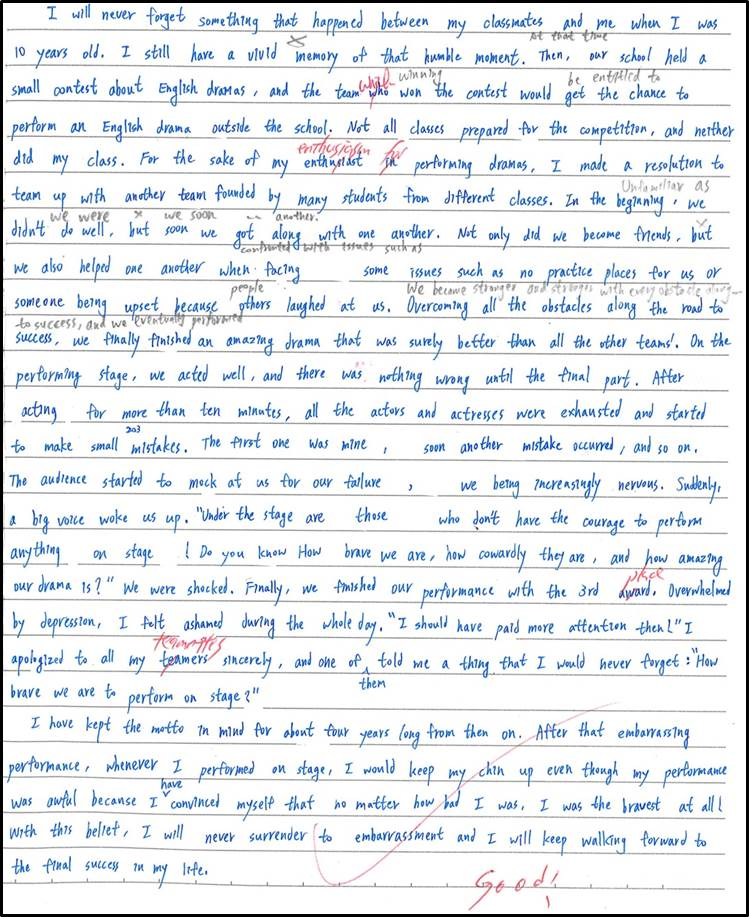 I will never forget something that happened between my classmates and me when I was
At that time
10 years old. I still have a vivid memory of that humble moment. Then, our school held a
which winning be entitled to
small contest about English dramas, and the team who won the contest would get the chance to
perform an English drama outside the school. Not all classes prepared for the competition, and neither
enthusiasm for
did my class. For the sake of my enthusiast in performing dramas, I made a resolution to
Unfamiliar as
team up with another team founded by many students from different classes. In the beginning, we
we were we soon another.
didn't do well, but soon we got along with one another. Not only did we become friends, but
confronted with issues such as
we also helped one another when facing some issues such as no practice places for us or
people We became stronger and stronger with every obstacle along
someone being upset because others laughed at us. Overcoming all the obstacles along the road to
to success, and we eventually performed
success, we finally finished an amazing drama that was surely better than all the other teams'. On the
performing stage, we acted well, and there was nothing wrong until the final part. After
acting for more than ten minutes, all the actors and actresses were exhausted and started
to make small mistakes. The first one was mine, soon another mistake occurred, and so on.
The audience started to mock at us for our failure, we being increasingly nervous. Suddenly,
a big voice woke us up. "Under the stage are those who don't have the courage to perform
anything on stage! Do you know How brave we are, how cowardly they are, and how amazing
place
our drama is?" We were shocked. Finally, we finished our performance with the 3rd award. Overwhelmed
by depression, I felt ashamed during the whole day. "I should have paid more attention then!" I
teammates
apologized to all my teamers sincerely, and one of told me a thing that I would never forget: "How
them
brave we are to perform on stage?"
I have kept the motto in mind for about four years long from then on. After that embarrassing
performance, whenever I performed on stage, I would keep my chin up even though my performance
have
was awful because I convinced myself that no matter how bad I was, I was the bravest at all!
With this belief, I will never surrender to embarrassment and I will keep walking forward to
the final success in my life.
Good!